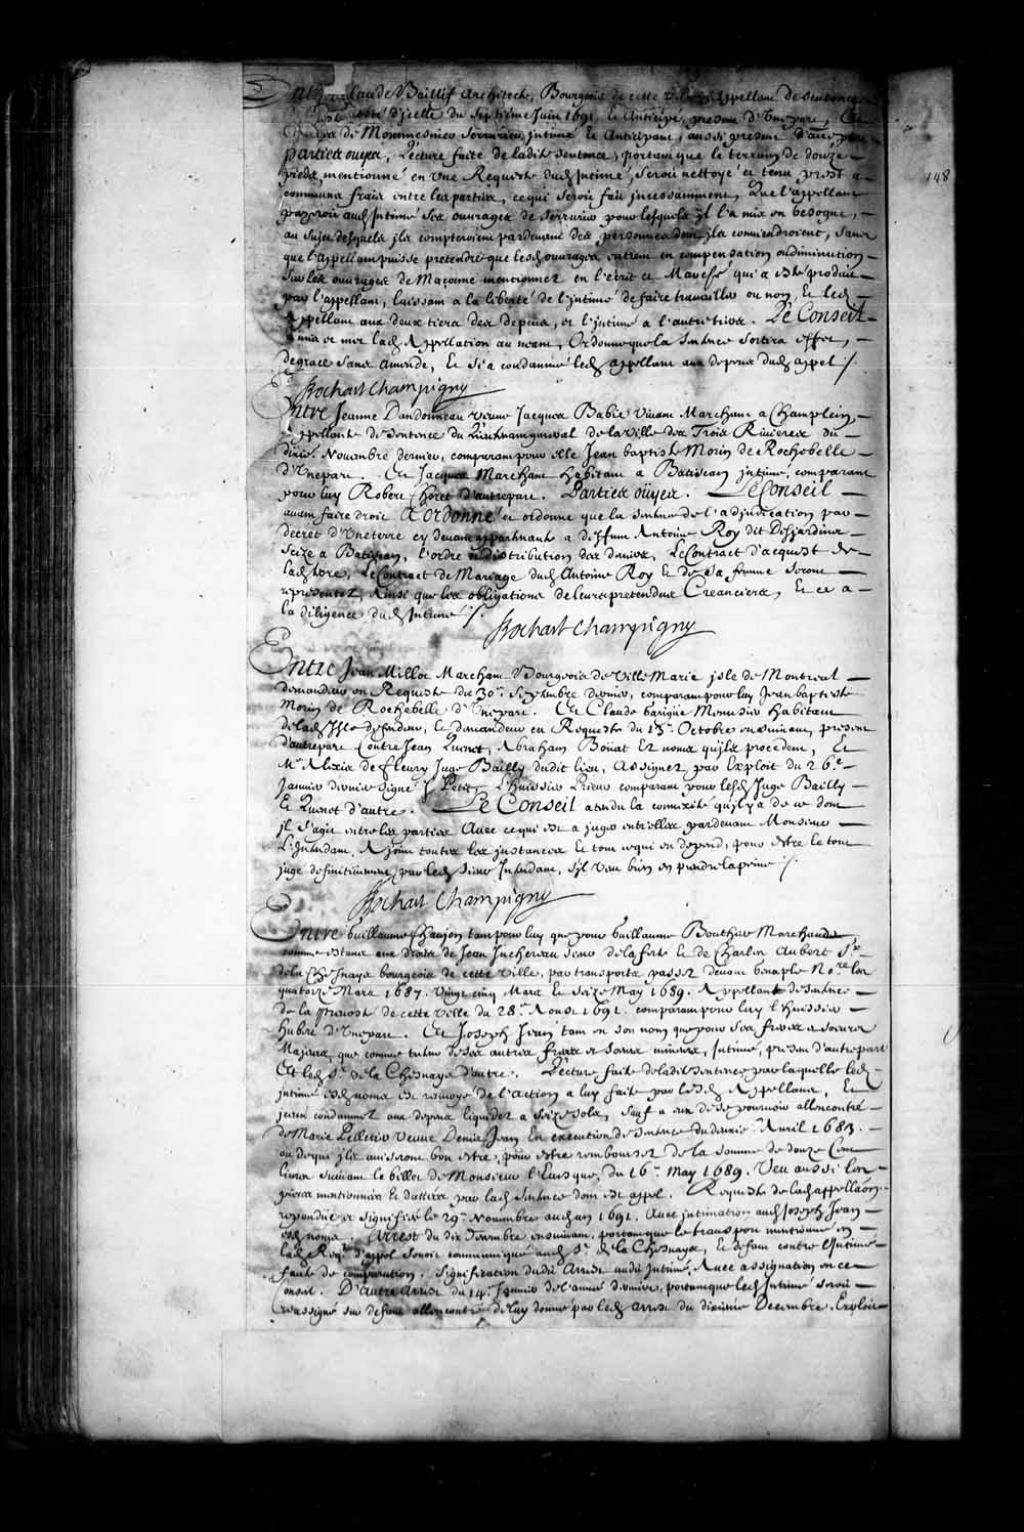 Entre Claude Baillif Architecte, Bourgeois de cette ville, appellant de Sentence
d'Icelle du Septiéme Juin 1691, et Anticipé, present d'Une part, Et
de Montmesnier Serrurier, Intimé et Anticipant, aussi present d'autre part
parties ouyes, Lecture faite de ladite Sentence, portant que le terrain de douze
pieds, mentionné en Une Requeste dud. Intimé, seroit nettoyé et tenu prest a
communs frais entre les parties, ce qui seroit fait incessamment, Que l'appellant
payeroit aud. Intimé Ses ouvrages de Serrurier pour lesquels Il l'a mis en besogne,
au sujet desquels ils compteroient pardevant des personnes dont ils conviendroient, Sans
que l'appellant puisse pretendre que lesd. ouvrages entrent en compensation ou diminution
Sur les ouvrages de Maçonne mentionnez en l'écrit et Marché qui a esté produit
par l'appellant, laissant a la liberté de l'intimé de faire travailler ou non, Et led.
Appellant aux deux tiers des depens, et l'intimé a l'autre tiers. Le Conseil
a mis et met lad. Appellation au neant, Ordonne que la Sentence sortira effet,
de grace Sans amende, Et Si a condamné led. appellant aux depens dud. appel /.
Bochart Champigny
Entre Jeanne Dandonneau veuve Jacques Babie Vivant Marchant a Champlein,
appellante de Sentence du Lieutenant general de la ville des Trois Rivieres du
dixie. Novembre dernier, comparant pour elle Jean baptiste Morin de Rochebelle
d'Une part. Et Jacques Marchant habitant a Batiscan intimé, comparant
pour luy Robert Choret d'autre part. Parties oüyes. Le Conseil
avant faire droit A Ordonné et ordonne que la Sentence de l'adjudication par
decret d'Une terre cy devant appartenante a deffunt Antoine Roy dit Desjardins
Seize a Batiscan, l'ordre et distribution des deniers, Le Contract d'acquest de
lad. terre, Le Contract de Mariage dud. Antoine Roy Et de Sa femme Seront
representez, Ainsi que les obligations de leurs pretendus Creanciers, Et ce a
la diligence dud. Intimé /.
Bochart Champigny
Entre Jean Millot Marchant Bourgeois de Ville Marie isle de Montreal
demandeur en Requeste du 30e. Septembre dernier, comparant pour luy Jean baptiste
Morin de Rochebelle d'Une part. Et Claude Garigüe Menuisier habitant
de lad. Isle defendeur, Et demandeur en Requeste du 15e. Octobre ensuivant, present
d'autre part Contre Jean Quenet, Abraham Boüat Ez noms qu'ils procedent, Et
Me. Alexis de Fleury Juge Bailly dudit lieu, Assignez par Exploit du 26e.
Janvier dernier signé Petit, L'huissier Prieur comparant pour lesd. Juge Bailly
Et Quenet d'autre. Le Conseil attendu la connexité qu'il y a de ce dont
il S'agit entre les parties Avec ce qui est a juger entr'elles pardevant Monsieur
L'Intendant, A joint toutes les instances et tout ce qui en depend, pour estre le tout
jugé definitivement par led. Sieur Intendant, S'il veut bien en prendre la peine /.
Bochart Champigny
Entre Guillaume Chanjon tant pour luy que pour Guillaume Bouthier Marchands
comme estans aux droits de Jean Juchereau sieur de la ferté Et de Charles Aubert Sr.
de la Chesnaye bourgeois de cette Ville, par transports passez devant Genaple Nore. les
quatorze Mars 1687. Vingt cinq Mars Et Seize May 1689. Appellants de Sentence
de la prevosté de cette Ville du 28e. Aoust 1691. comparant pour luy l'huissier
Hubert d'Une part. Et Joseph Jean tant en Son nom que pour Ses freres et Soeurs
Majeurs, que comme tuteur de Ses autres freres et Soeurs mineurs, Intimé, present d'autre part
Et led. Sr. de la Chesnaye d'autre. Lecture faite de ladite Sentence par laquelle led.
intimé esd. noms est renvoyé de l'action a luy faite par lesd. Appellans, Et
iceux condamnez aux depens liquidez a Seize Sols, Sauf a eux de Se pourvoir allencontre
de Marie Pelletier Veuve Denis Jean En execution de Sentence du dernier Avril 1683.
ou de qui ils aviseront bon estre, pour estre remboursez de la Somme de douze Cent
livres Suivant le billet de Monsieur l'Evesque, du 16e. May 1689. Veu aussi les
pieces mentionnées Et dattées par lad. Sentence dont est appel. Requeste desd. appellans
repondüe et Signifiée le 29e. Novembre aud. an 1691. Avec intimation aud. Joseph Jean
esd. noms. Arrest du dix Decembre ensuivant, portant que le transport mentionné en
lad. Reqte. d'appel Seroit communiqué aud. Sr. de la Chesnaye, Et defaut contre l'Intimé
faute de comparution. Signification dudit Arrest audit Intimé, Avec assignation en ce
Conseil. D'Autre Arrest du 14e. Janvier de l'année derniere, portant que led. Intimé Seroit
reassigné Sur defaut allencontre de luy donné par led. arrest du dixiéme Decembre. Exploit
148